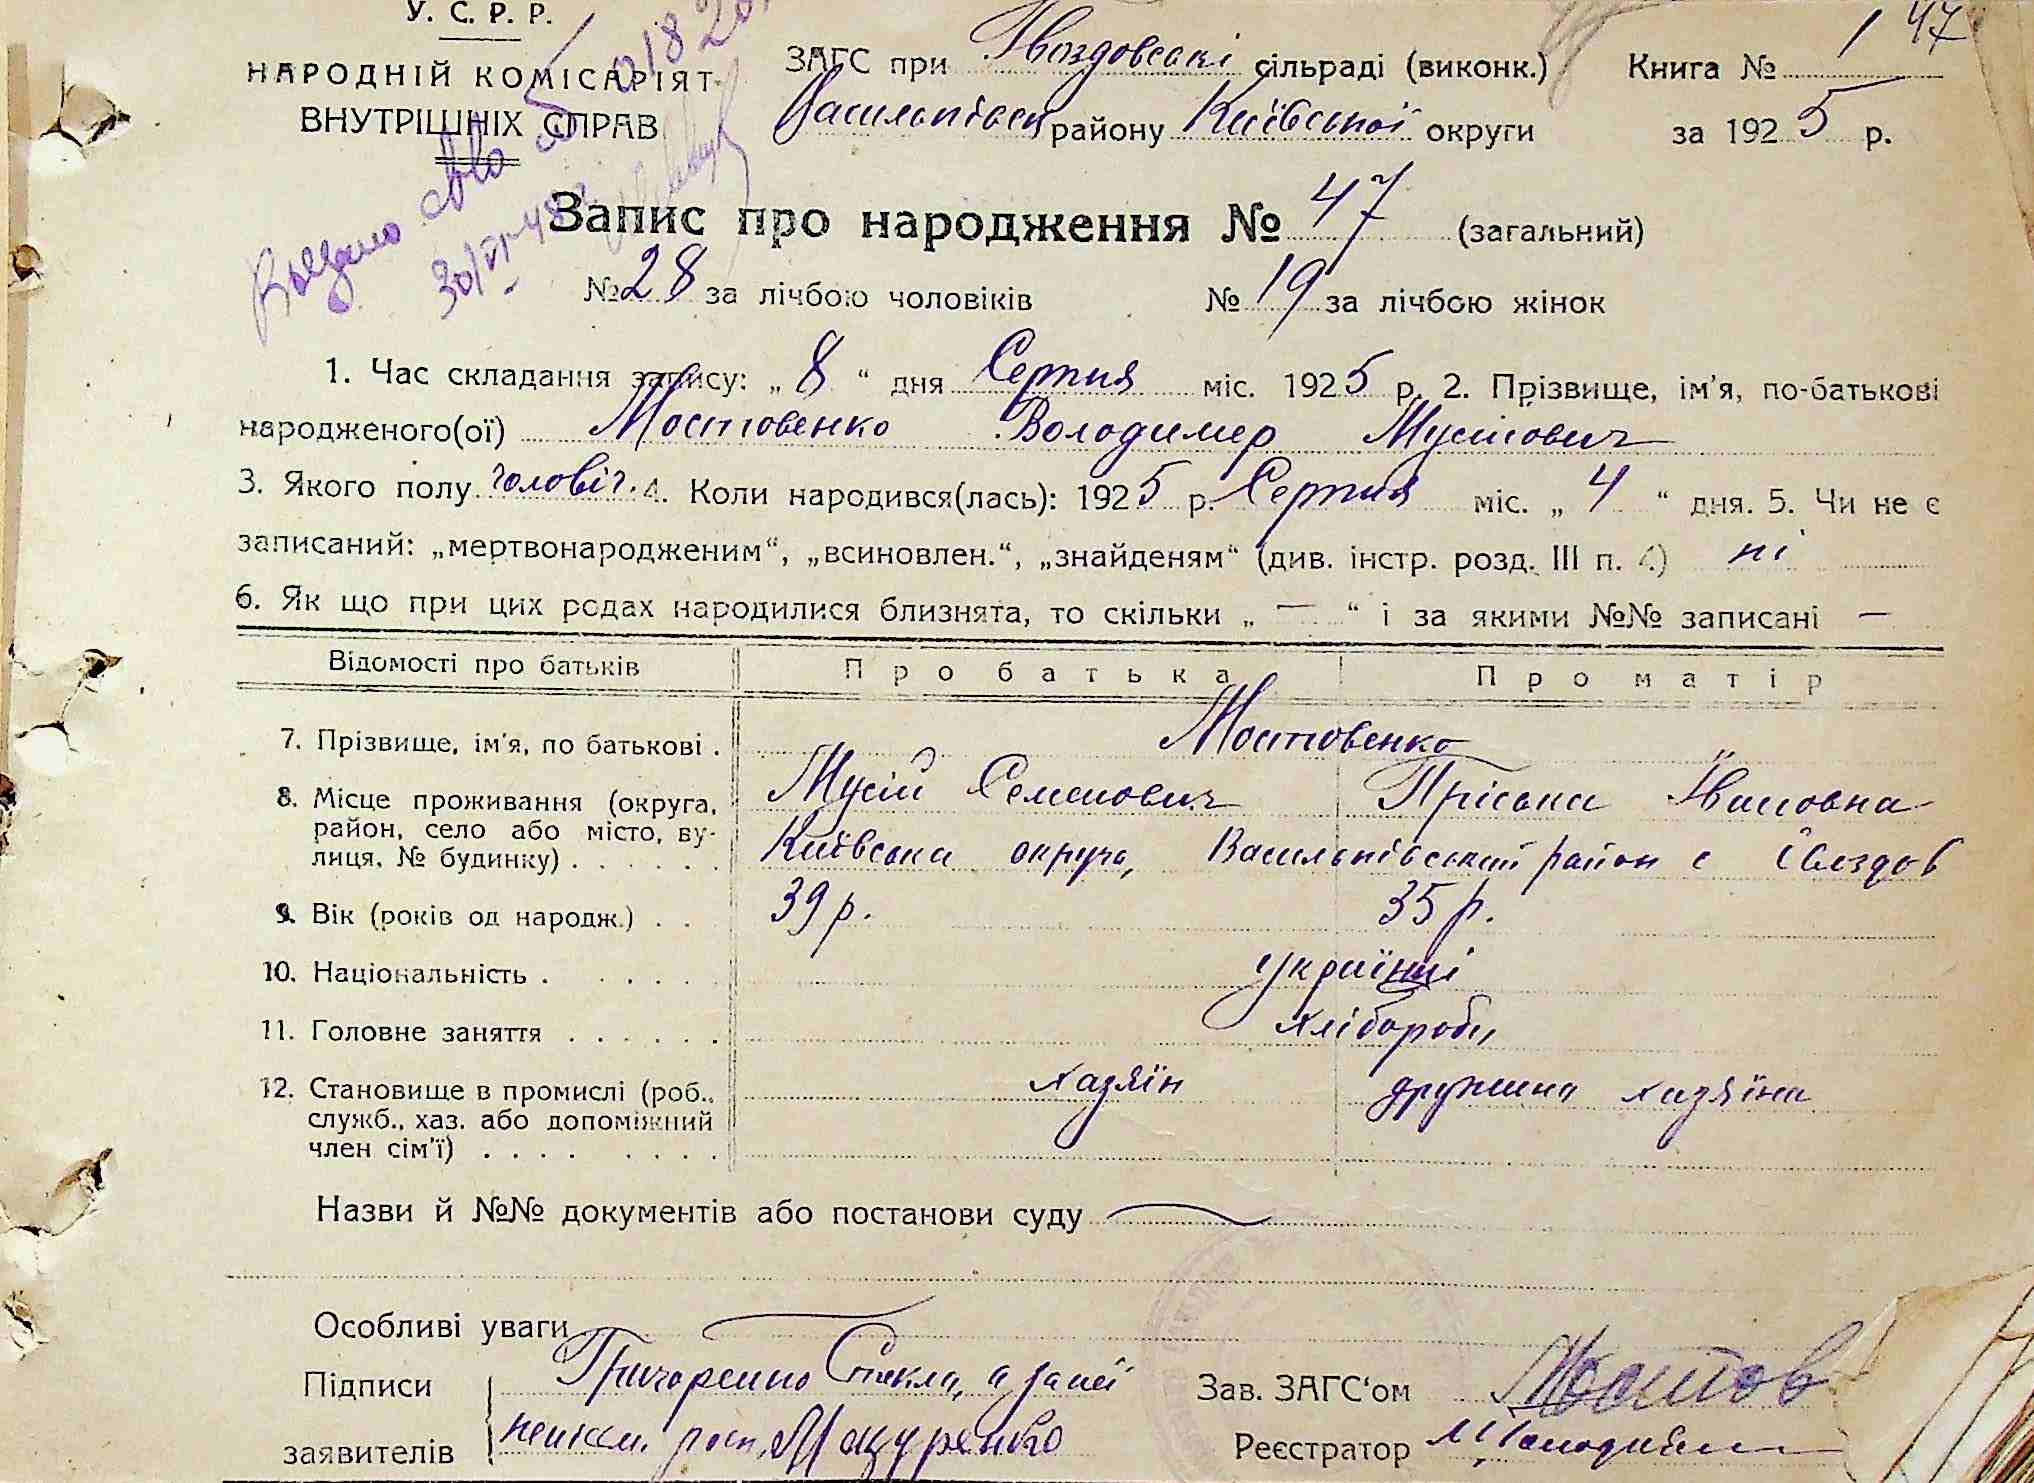 У. С. Р. Р.
НАРОДНІЙ КОМІСАРІЯТ
ВНУТРІШНІХ СПРАВ
ЗАГС при Гвоздовські сільраді (виконк.) Книга № 1 47
Васильківськ району Київської округи за 1925 р.
Видано
Запис про народження № 47 (загальний)
№ 28 за лічбою чоловіків № 19 за лічбою жінок
1. Час складання запису: „ 8 “ дня Серпня міс. 1925 р. 2. Прізвище, ім'я, по-батькові
народженого(ої) Мостовенко Володимер Мусійович
3. Якого полу чоловіч. 4. Коли народився(лась): 1925 р. Серпня міс. „ 4 “ дня. 5. Чи не є
записаний: „мертвонародженим“, „всиновлен.“, „знайденям“ (див. інстр. розд. III п. 4.) ні
6. Як що при цих родах народилися близнята, то скільки „ — “ і за якими №№ записані —
Відомості про батьків Про батька Про матір
7. Прізвище, ім'я, по батькові . Мостовенко
Мусій Семенович Пріська Івановна
8. Місце проживання (округа,
район, село або місто, ву-
лиця, № будинку) . . . . . . Київська округа, Васильківський район с Гвоздов
9. Вік (років од народж.) . . 39 р. 35 р.
10. Національність . . . . . українці
11. Головне заняття . . . . . . хлібороби
12. Становище в промислі (роб., хазяїн дружина хазяїна
служб., хаз. або допоміжний
член сім'ї) . . . . . . . .
Назви й №№ документів або постанови суду
Особливі уваги
Підписи Григоренко Текла, а за неї
заявителів непісьм. росп. Мацуренко
Зав. ЗАГС'ом Мостов
Реєстратор